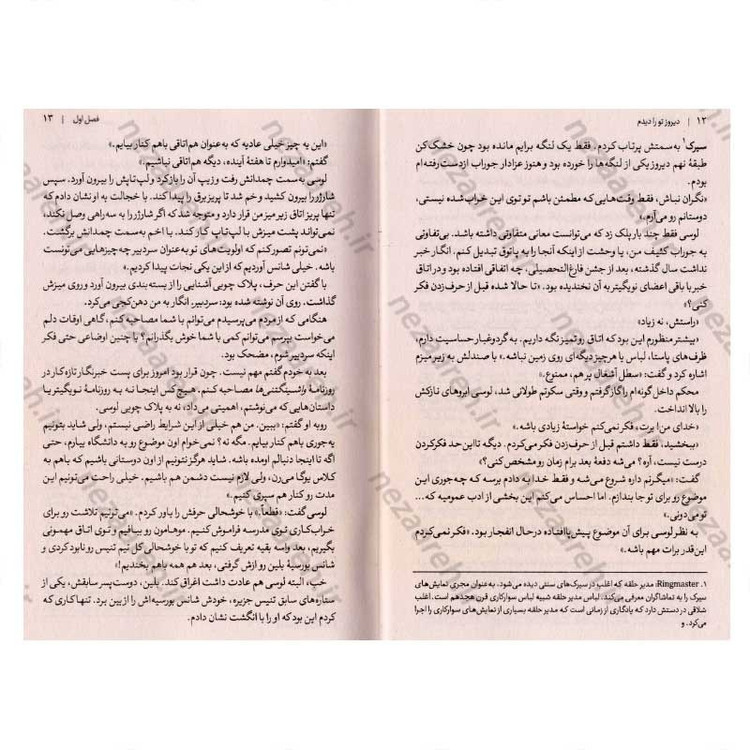 ۱۲ | دیروز تو را دیدم
سیرک۱ به سمتش پرتاب کردم. فقط یک لنگه برایم مانده بود چون خشک‌کن
طبقهٔ نهم دیروز یکی از لنگه‌ها را خورده بود و هنوز عزادار جوراب ازدست‌رفته‌ام
بودم.
«نگران نباش، فقط وقت‌هایی که مطمئن باشم تو توی این خراب‌شده نیستی،
دوستانم رو می‌آرم.»
لوسی فقط چند بار پلک زد که می‌توانست معانی متفاوتی داشته باشد. بی‌تفاوتی
به جوراب کثیف من، یا وحشت از اینکه آنجا را به پاتوق تبدیل کنم. انگار خبر
نداشت سال گذشته، بعد از جشن فارغ‌التحصیلی، چه اتفاقی افتاده بود و در اتاق
خبر با باقی اعضای نویگیتر به آن نخندیده بود. «تا حالا شده قبل از حرف‌زدن فکر
کنی؟»
«راستش، نه زیاد»
«بیشتر منظورم این بود که اتاق رو تمیز نگه داریم. به گردوغبار حساسیت دارم.
ظرف‌های پاستا، لباس یا هرچیز دیگه‌ای روی زمین نباشه.» با صندلش به زیر میزم
اشاره کرد و گفت: «سطل آشغال پر هم، ممنوع.»
محکم داخل گونه‌ام را گاز گرفتم و وقتی سکوتم طولانی شد، لوسی ابروهای نازکش
را بالا انداخت.
«خدای من! برت، فکر نمی‌کنم خواستهٔ زیادی باشه.»
«ببخشید، فقط داشتم قبل از حرف‌زدن فکر می‌کردم. دیگه تا این حد فکر کردن
درست نیست، آره؟ می‌شه دفعهٔ بعد برام زمان رو مشخص کنی؟»
گفت: «میگرنم داره شروع می‌شه و فقط خدا به دادم برسه که چه‌جوری این
موضوع رو برای تو جا بندازم. اما احساس می‌کنم این بخشی از ادب عمومیه که...
تو می‌دونی.»
به نظر لوسی برای آن موضوع پیش‌پاافتاده درحال انفجار بود. «فکر نمی‌کردم
این‌قدر برات مهم باشه.»
۱. Ringmaster: مدیر حلقه که اغلب در سیرک‌های سنتی دیده می‌شود. به‌عنوان مجری نمایش‌های
سیرک را به تماشاگران معرفی می‌کند. لباس مدیر حلقه شبیه لباس سوارکاری قرن هجدهم است. اغلب
شلاقی در دستش دارد که یادگاری از زمانی است که مدیر حلقه بسیاری از نمایش‌های سوارکاری را اجرا
می‌کرد. و
فصل اول | ۱۳
«این یه چیز خیلی عادیه که به‌عنوان هم‌اتاقی باهم کنار بیایم.»
گفتم: «امیدوارم تا هفتهٔ آینده، دیگه هم‌اتاقی نباشیم.»
لوسی به سمت چمدانش رفت و زیپ آن را باز کرد و لپ‌تاپش را بیرون آورد. سپس
شارژر را بیرون کشید و خم شد تا پریز برق را پیدا کند. با خجالت به او نشان دادم که
تنها پریز اتاق زیر میز من قرار دارد و متوجه شد که اگر شارژر را به سه‌راهی وصل نکند،
نمی‌تواند پشت میزش با لپ‌تاپ کار کند. با اخم به سمت چمدانش برگشت.
«نمی‌تونم تصور کنم که اولویت‌های تو به‌عنوان سردبیر چه چیزهایی می‌تونست
باشه. خیلی شانس آوردیم که از این یکی نجات پیدا کردیم.»
با گفتن این حرف، پلاک چوبی آشنایی را از بسته‌بندی بیرون آورد و روی میزش
گذاشت. روی آن نوشته شده بود: سردبیر. انگار به من دهن‌کجی می‌کرد.
هنگامی که از مردم می‌پرسیدم می‌توانم با شما مصاحبه کنم، گاهی اوقات دلم
می‌خواست بپرسم می‌توانم کمی با شما خوش بگذرانم؟ با چنین اوضاعی حتی فکر
اینکه سردبیر شوم، مضحک بود.
بعد به خودم گفتم مهم نیست. چون قرار بود امروز برای پست خبرنگار تازه‌کار در
روزنامهٔ واشینگتنی‌ها مصاحبه کنم. هیچ‌کس اینجا نه به روزنامهٔ نویگیتر یا
داستان‌هایی که می‌نوشتم، اهمیتی می‌داد، نه به پلاک چوبی لوسی.
رو به او گفتم: «ببین. من هم خیلی از این شرایط راضی نیستم، ولی شاید بتونیم
یه‌جوری باهم کنار بیایم. مگه نه؟ نمی‌خوام اون موضوع رو به دانشگاه بیارم، حتی
اگه تا اینجا دنبالم اومده باشه. شاید هرگز نتونیم از اون دوستانی باشیم که باهم به
کلاس یوگا می‌رن، ولی لازم نیست دشمن هم باشیم. خیلی راحت می‌تونیم این
مدت رو کنار هم سپری کنیم.»
لوسی گفت: «قطعاً.» با خوشحالی حرفش را باور کردم. «می‌تونیم تلاشت رو برای
خراب‌کاری توی مدرسه فراموش کنیم. موهامون رو ببافیم و توی اتاق مهمونی
بگیریم، بعد واسه بقیه تعریف کنیم که تو با خوشحالی کل تیم تنیس رو نابود کردی و
شانس بورسیهٔ بلین رو ازش گرفتی، بعد هم همه باهم بخندیم!»
خب، البته لوسی هم عادت داشت اغراق کند. بلین، دوست‌پسر سابقش، یکی از
ستاره‌های سابق تنیس جزیره، خودش شانس بورسیه‌اش را از بین برد. تنها کاری که
کردم این بود که او را با انگشت نشان دادم.
nezaareh.ir